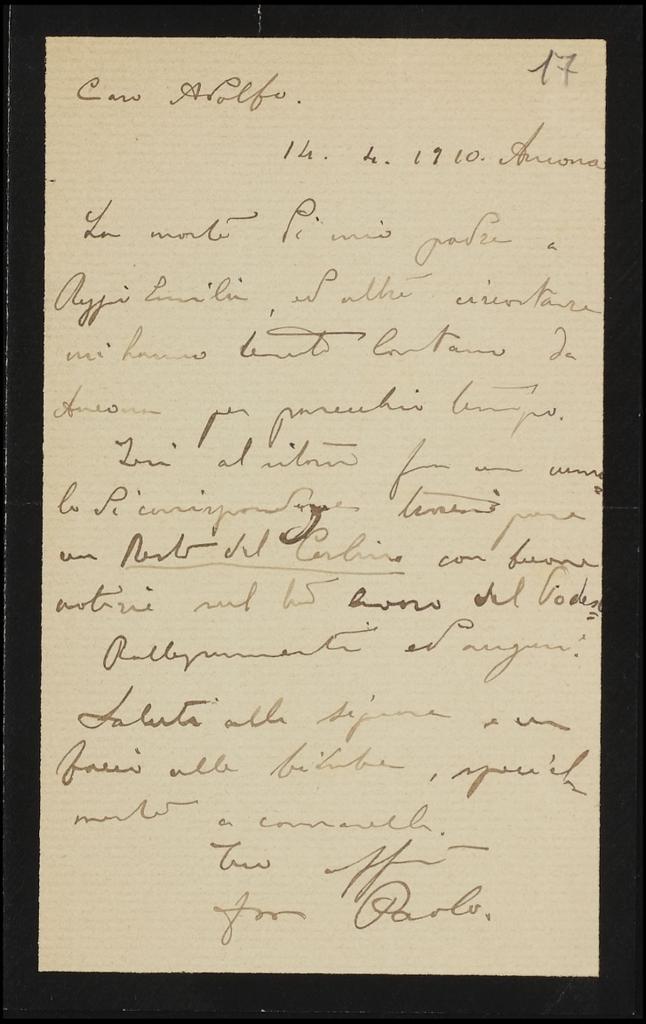 17
Caro Adolfo.
14. 4. 1910. Ancona
La morte di mio padre a
Reggio Emilia, ed altre circostanze
mi hanno tenuto lontano da
Ancona per parecchio tempo.
Ieri al ritorno fra un cumu=
lo di corrispondenze trovai pure
un Resto del Carlino con buone
notizie sul tuo lavoro del Podes=
Rallegramenti ed auguri.
Saluti alla signora e un
bacio alle bimbe, special
mente a
Tuo aff
Paolo.